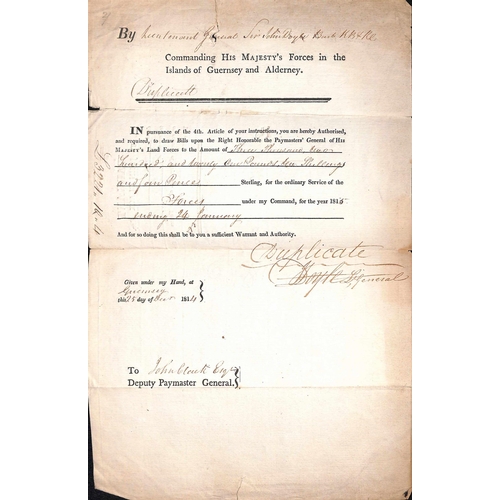 By Lieutenant General Sir John Doyle Bart K.B. & K.C.
Commanding His Majesty's Forces in the
Islands of Guernsey and Alderney.
Duplicate
In pursuance of the 4th. Article of your instructions, you are hereby Authorised,
and required, to draw Bills upon the Right Honorable the Paymasters' General of His
Majesty's Land Forces to the Amount of Three Thousand
Hundred and twenty One Pounds, ten Shillings
and four Pence Sterling, for the ordinary Service of the
Forces under my Command, for the year 181
ending 24 January
And for so doing this shall be to you a sufficient Warrant and Authority.
Duplicate
Doyle Lt General
Given under my Hand, at
Guernsey
this 25 day of 1814
To John Esqr
Deputy Paymaster General.